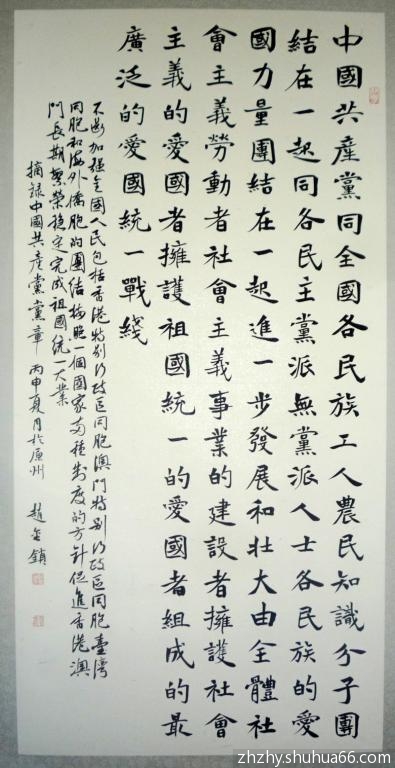 中國共產黨同全國各民族工人農民知識分子團
結在一起同各民主黨派無黨派人士各民族的愛
國力量團結在一起進一步發展和壯大由全體社
會主義勞動者社會主義事業的建設者擁護社會
主義的愛國者擁護祖國統一的愛國者組成的最
廣泛的愛國統一戰綫
不斷加强全國人民包括香港特别行政區同胞澳門特别行政區同胞臺灣
同胞和海外僑胞的團結按照一個國家兩種制度的方針促進香港澳
門長期繁榮穩定完成祖國統一大業
摘録中國共產黨黨章 丙申夏月於原州 趙金鎖
zhzhy.shuhua66.com